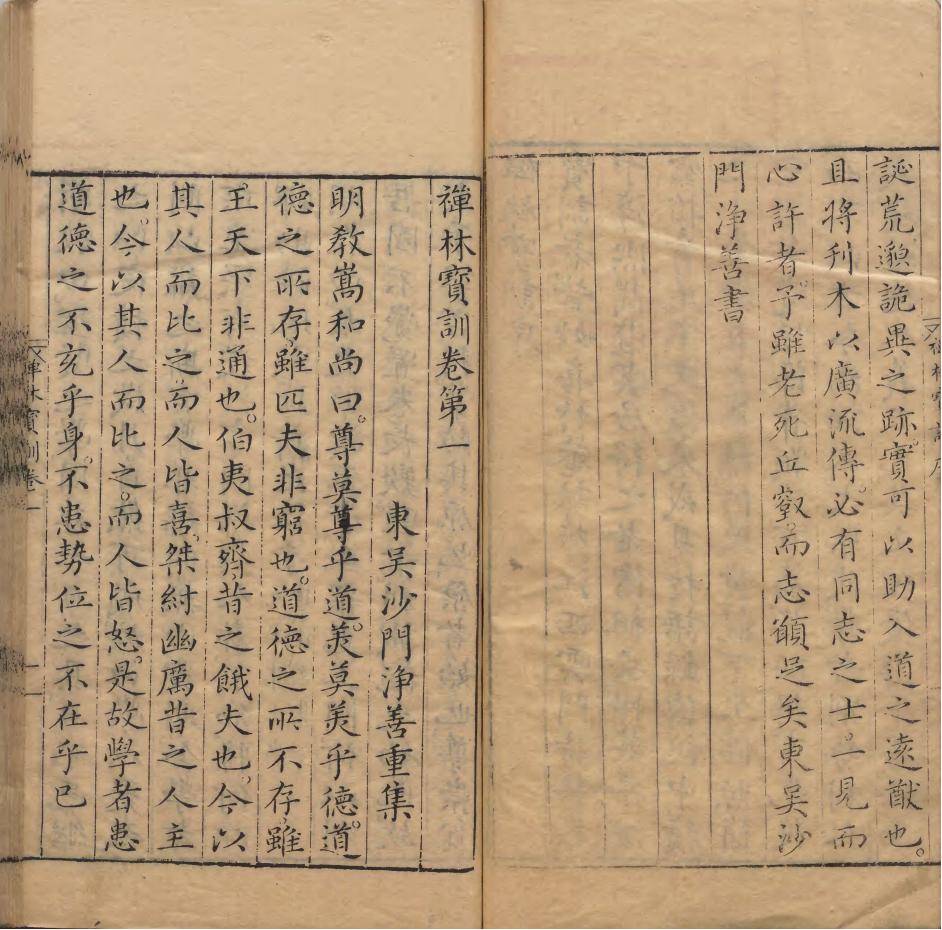 誕荒邈詭異之跡。實可以助入道之遠猷也。
且將刊木以廣流傳。必有同志之士。一見而
心許者。予雖老死丘壑。而志願足矣。東吴沙
門淨善書
禪林寶訓卷第一
東吴沙門淨善重集
明教嵩和尚曰。尊莫尊乎道。美莫美乎德。道
德之所存。雖匹夫非窮也。道德之所不存。雖
王天下非通也。伯夷叔齊。昔之餓夫也。今以
其人而比之。而人皆喜。桀紂幽厲昔之人主
也。今以其人而比之。而人皆怒。是故學者患
道德之不充乎身。不患勢位之不在乎己
禪林寶訓卷一